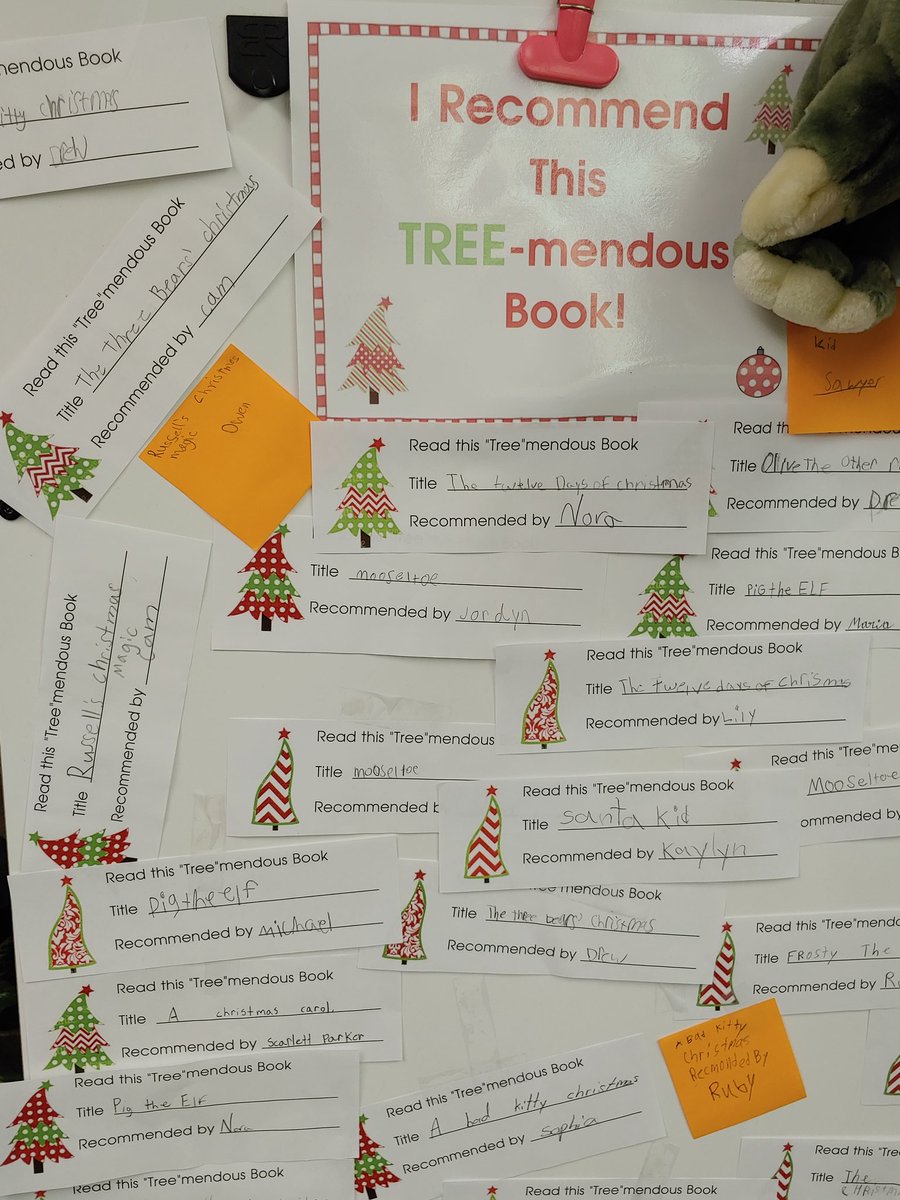 I Recommend
This
TREE-mendous
Book!
mendous Book
itty christmas
ed by Drew
Read this "Tree"mendous Book
Title The Three Bears' christmas
Recommended by cam
Russell's christmas
magic
Owen
kid
Sawyer
Read this "Tree"mendous Book
Title The twelve Days of christmas
Recommended by Nora
Read
Title Olive The Other
Recommended by Dre
Title mooseltoe
Recommended by Jordyn
Read this "Tree"mendous B
Title Pig the ELF
Recommended by Maria
Read this "Tree"mendous Book
Title Russell's christmas
magic
Recommended by Cam
Read this "Tree"mendous Book
Title The twelve days of chrismas
Recommended by Lily
Read this "Tree"mendous
Title mooseltoe
Recommended
Read this "Tree"me
Mooseltoe
ommended by
Read this "Tree"mendous Book
Title santa kid
Recommended by Kaylyn
Read this "Tree"mendous Book
Title pig the elf
Recommended by michael
"Tree"mendous Book
Title The three bears' christmas
Recommended by Drew
Read this "Tree"mendo
Title Frosty The
Recommended by R
Read this "Tree"mendous Book
Title A christmas carol.
Recommended by Scarlett Parker
A Bad Kitty
Christmas
Recmonlded By
Ruby
Read this "Tree"mendous Book
Title Pig the Elf
Recommended by Nora
Read this "Tree"mendous Book
Title A bad kitty christmas
Recommended by sophia
Read this "Tree"mendous Book
Read this "Tree"mendous Book
Read this "Tree
Title The
christm